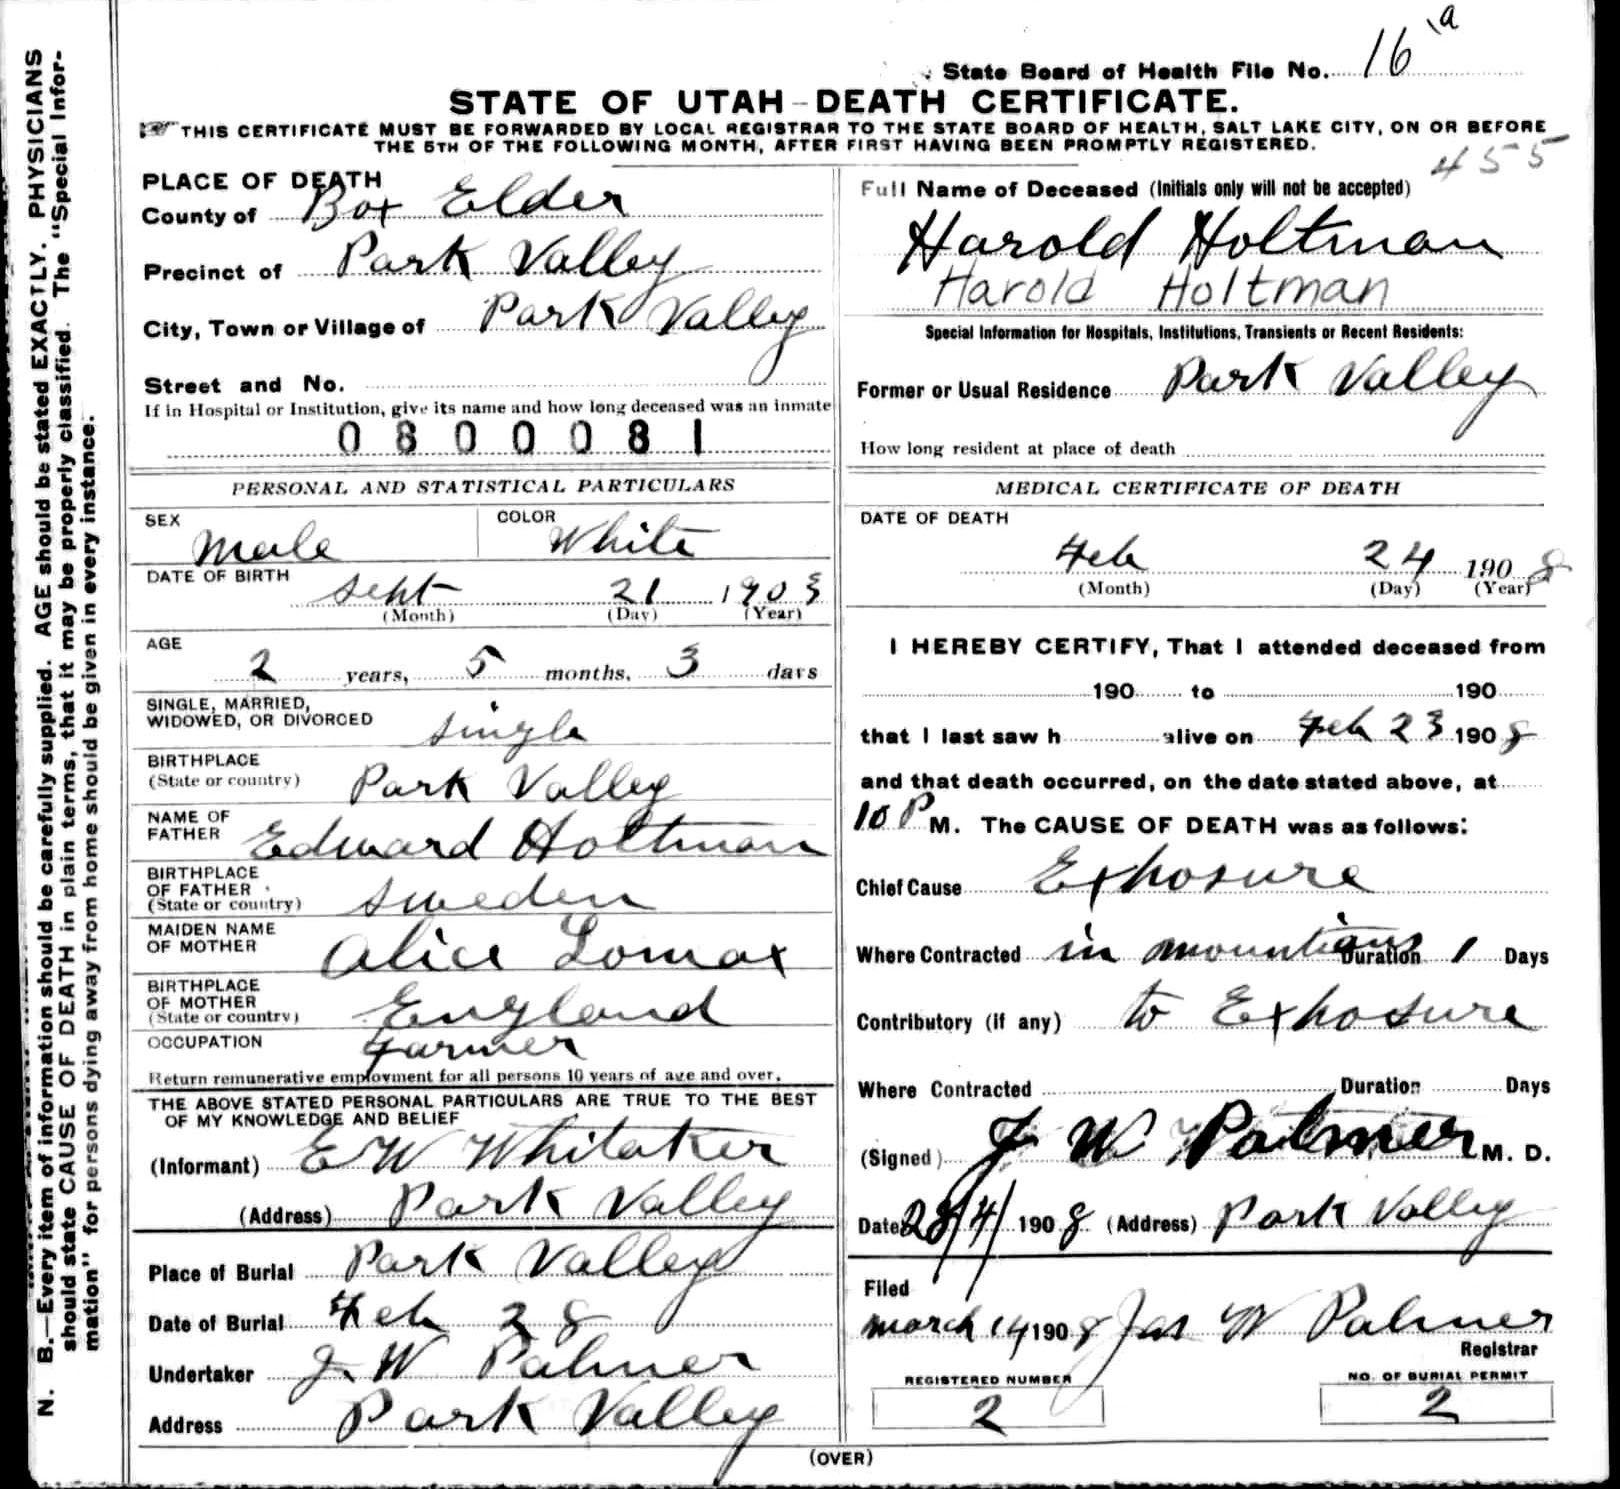 16 a
State Board of Health File No.
STATE OF UTAH-DEATH CERTIFICATE.
THIS CERTIFICATE MUST BE FORWARDED BY LOCAL REGISTRAR TO THE STATE BOARD OF HEALTH, SALT LAKE CITY, ON OR BEFORE
THE 5TH OF THE FOLLOWING MONTH, AFTER FIRST HAVING BEEN PROMPTLY REGISTERED.
455
PLACE OF DEATH
County of Box Elder
Precinct of Park Valley
City, Town or Village of Park Valley
Street and No.
If in Hospital or Institution, give its name and how long deceased was an inmate
0800081
PERSONAL AND STATISTICAL PARTICULARS
SEX Male COLOR White
DATE OF BIRTH Sept 21 1903
(Month) (Day) (Year)
AGE
2 years, 5 months, 3 days
SINGLE, MARRIED,
WIDOWED, OR DIVORCED Single
BIRTHPLACE
(State or country) Park Valley
NAME OF
FATHER Edward Holtman
BIRTHPLACE
OF FATHER
(State or country) Sweden
MAIDEN NAME
OF MOTHER Alice Lomax
BIRTHPLACE
OF MOTHER
(State or country) England
OCCUPATION Farmer
Return remunerative employment for all persons 10 years of age and over.
THE ABOVE STATED PERSONAL PARTICULARS ARE TRUE TO THE BEST
OF MY KNOWLEDGE AND BELIEF
(Informant) E W Whitaker
(Address) Park Valley
Place of Burial Park Valley
Date of Burial Feb 28
Undertaker J. W Palmer
Address Park Valley
Full Name of Deceased (Initials only will not be accepted)
Harold Holtman
Harold Holtman
Special Information for Hospitals, Institutions, Transients or Recent Residents:
Former or Usual Residence Park Valley
How long resident at place of death
MEDICAL CERTIFICATE OF DEATH
DATE OF DEATH
Feb 24 1908
(Month) (Day) (Year)
I HEREBY CERTIFY, That I attended deceased from
190 to 190
that I last saw h alive on Feb 23 1908
and that death occurred, on the date stated above, at
10 P M. The CAUSE OF DEATH was as follows:
Chief Cause Exposure
Where Contracted in mountians Duration 1 Days
Contributory (if any) to Exposure
Where Contracted Duration Days
(Signed) J W Palmer M. D.
Date 28/4/ 1908 (Address) Park Valley
Filed
March 14 1908 Jas W Palmer
Registrar
REGISTERED NUMBER
2
NO. OF BURIAL PERMIT
2
(OVER)
N. B.—Every item of information should be carefully supplied. AGE should be stated EXACTLY. PHYSICIANS
should state CAUSE OF DEATH in plain terms, that it may be properly classified. The "Special Infor-
mation" for persons dying away from home should be given in every instance.